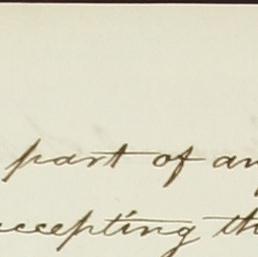 part of an
accepting th